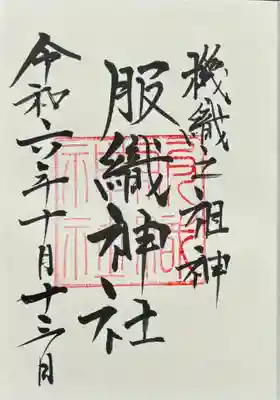 機織之祖神
服織神社
令和六年十月十三日